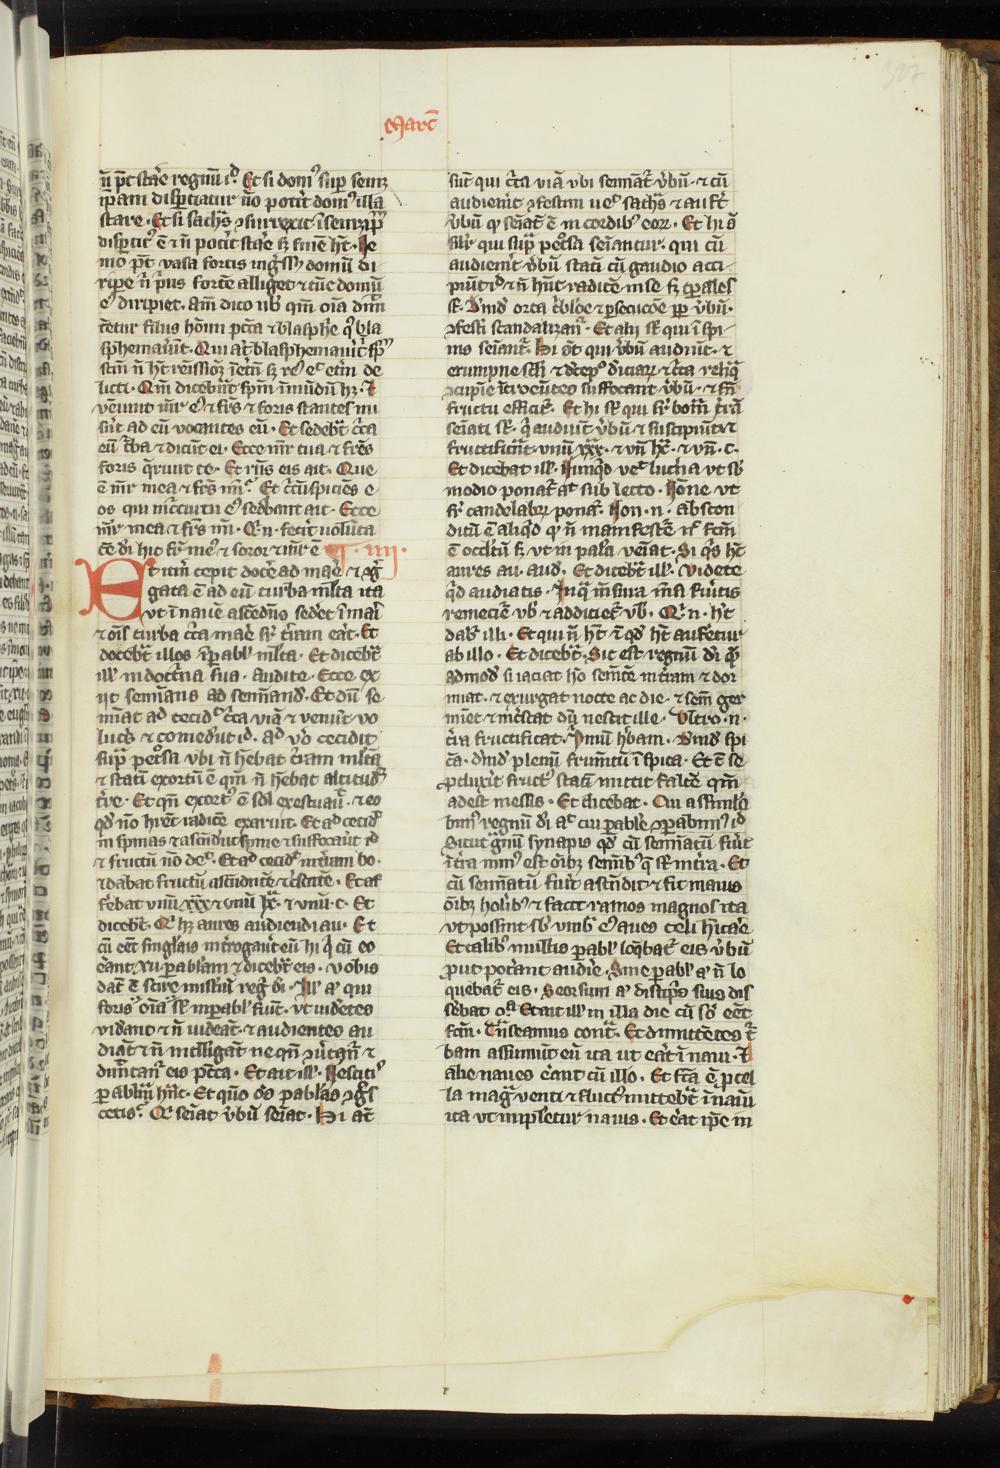 327
Marc̄
n̄ pt̄ stare regnū id. Et si domꝰ suꝑ semꝫ
ip̄am disꝑtiatur nō potit domꝰ illa
stare. Et si sathās ꝯsurrexit ī semꝫip̄m
disꝑtitꝰ ē ⁊ n̄ potit stare sꝫ finē hꝫ. Ne
mo pt̄ vasa fortis ingressꝰ domū di
ripe n̄ pͥus fortē alliget ⁊ tūc domū
eꝰ diripiet. Am̄ dico uob qm̄ oīa dim̄
tetur filiis hoīm pctā ⁊ blasphēe qꝰ bla
sphemauint. Qui aūt blasphemauit sp̄m
scm̄ n̄ hꝫ remissioꝫ ī etnū sꝫ reꝰ eͭ etni de
licti. Qm̄ dicebnt spm̄ īmūdū hꝫ. ⁊
veniunt mr̄ eꝰ ⁊ frs̄ ⁊ foris stantes mi
sūt ad eū vocantes eū. Et sedebt̄ cͣca
eū tͬba ⁊ dicūt ei. Ecce mr̄ tua ⁊ frēs
foris qͬrunt te. Et rn̄s eis ait. Que
ē mr̄ mea ⁊ frs̄ mͥ. Et cͥcūspiciēs e
os qui in cͥcuitu eꝰ sedebant ait. Ecce
mr̄ mea ⁊ frs̄ mi. Qͥ n. fecit uolūta
tē dī hic fr̄ meꝰ ⁊ soror ⁊ mr̄ ē C. iiij.
Et itm̄ cepit docē ad mare ⁊ ꝯgͬ
gata ē ad eū turba mlta ita
vt ī nauē ascēdēs sedēt ī mari
⁊ oīs turba cͥca mare sr̄ tͥram eāt. Et
docebt̄ illos ī ꝑabl mlta. Et dicebt̄
ill in doctͥna sua. Audite. Ecce ex
iit semīans ad semīand. Et dū se
mīat ad cecid cͥca viā ⁊ venūt vo
lucs ⁊ comedūt id. ad vo cecidit
supͣ petͦsa vbi n̄ hēbat tͥram mltā
⁊ statī exortū ē qm̄ n̄ hēbat altitud
tre. Et qn̄ exortꝰ ē sol exestuauͭ. ⁊ eo
qd nō hrēt radicē exaruit. Et ad cecid
in spinas ⁊ ascēdūt spine ⁊ suffocaūt id
⁊ fructū nō deͭ. Et ad cecid in tͥram bo.
⁊ dabat fructū ascēdētē ⁊ cͬscētē. Et af
febat vnū xxx ⁊ unū lx. ⁊ vnū. c. Et
dicebt̄. Qͥ hꝫ aures audiendi au. Et
cū eēt singlais introgaūt eū hi qͥ cū eo
eāt xii ꝑablam ⁊ dicebt̄ eis. vobis
datū ē scire mistiū regͥ dī. Ill aͭ qui
foris oīa sr̄ in ꝑabl fiūt. vt uidētes
vidant ⁊ n̄ uideāt. ⁊ audientes au
diāt ⁊ n̄ intelligāt ne qn̄ ꝯuͭtātͬ ⁊
dimtanͭ eis pctā. Et ait ill. Nescitis
ꝑablam hāc. Et quō oēs ꝑablas ꝯgͦs
cetis. Qͥ sēiat vbū sēiat. Hi aūt
sūt qui cͥca viā vbi semnāt vbū. ⁊ cū
audierit ꝯfestim ueͭ sathās ⁊ aufert
vbū qd seiāt ē in cordibꝰ eoꝝ. Et hi sͭ
silr qui supͣ petͦsa seiantur. qui cū
audierit vbū stati cū gaudio acci
piūt id ⁊ n̄ hn̄t radicē in se sꝫ tꝑales
sr̄. Dīnd orta tͥbloe ⁊ ꝑsecucōe ꝓp vbū.
ꝯfesti scandalizanͬ. Et alii sr̄ qui ī spi
nis seiantͬ. Hi sūt qui vbū audiūt. ⁊
erumpne scli ⁊ decepͦ diuiciaꝝ ⁊ cͥca reliqͣ
ꝯcupie īt̄roeūtes suffocant vbū. ⁊ sn̄
fructu efficitͬ. Et hi sr̄ qui sꝑ bonā tͥrā
seiati sr̄. qͥ audiūt vbū ⁊ suscipiūt. ⁊
fructificāt. vnū xxx. ⁊ vn̄ lx. ⁊ vn̄. c.
Et dicebat ill. Nunqd veͭ lucͥna vt sb
modio ponatͬ aͭ sub lecto. Nōne vt
sꝑ candelabꝝ ponatͬ. Non. n. abscon
ditū ē aliqd qd n̄ manifestē. nͨ fctm̄
ē occltū sꝫ vt in pala veiat. Si qͥs hꝫ
aures au. aud. Et dicebt̄ ill. videte
qd audiatis. In qͣ msura msi fūitis
remecietͬ vob ⁊ addicietͬ vob. Qͥ. n. hꝫ
dabͬ illi. Et qui n̄ hꝫ ī qd hꝫ aufetur
ab illo. Et dicebt̄. Sic est regnū dī qͣ
admod si iaciat ho semtē in tͥram ⁊ dor
miat. ⁊ exurgat nocte ac die. ⁊ sem̄ ger
miet ⁊ incͬscat dū nescit ille. vltro. n.
tͥra fructificat. Pͥmū hbam. dīnd spi
cā. dīnd plenū frumtū ī spica. Et ē se
ꝓduxit fructꝰ stati mittit falcē qm̄
adest messis. Et dicebat. Cui assimilab
bimꝰ regnū dī aͭ cui ꝑable ꝯꝑabimꝰ id
Sicut gͣnū synapis qd cū semīatū fūit
ī tͥra minꝰ est oībꝫ semībꝰ qͣ sr̄ in tͥra. Et
cū semīatū fuit ascēdit ⁊ fit maius
oībꝫ holibꝰ ⁊ facit ramos magnos ita
vt possint sb vmbͬ eꝰ aues celi hītare
Et talibꝰ multis ꝑabl loqͤbat̄ eis vbū
ꝓut potant audire. Sine ꝑabl aͭ n̄ lo
quebat̄ eis. Seorsum aͭ discipͥs suis dis
sebat oīa. Et ait ill in illa die cū sō eēt
fctm̄. Tͣnseamus contͣ. Et dimittētes tͬ
bam assumunt eū ita ut eāt ī naui. ⁊
alie naues eānt cū illo. Et fctā ē ꝓcel
la magͣ venti ⁊ fluctꝰ mittebt̄ ī nauī
ita vt impletur nauis. Et eāt ip̄e in